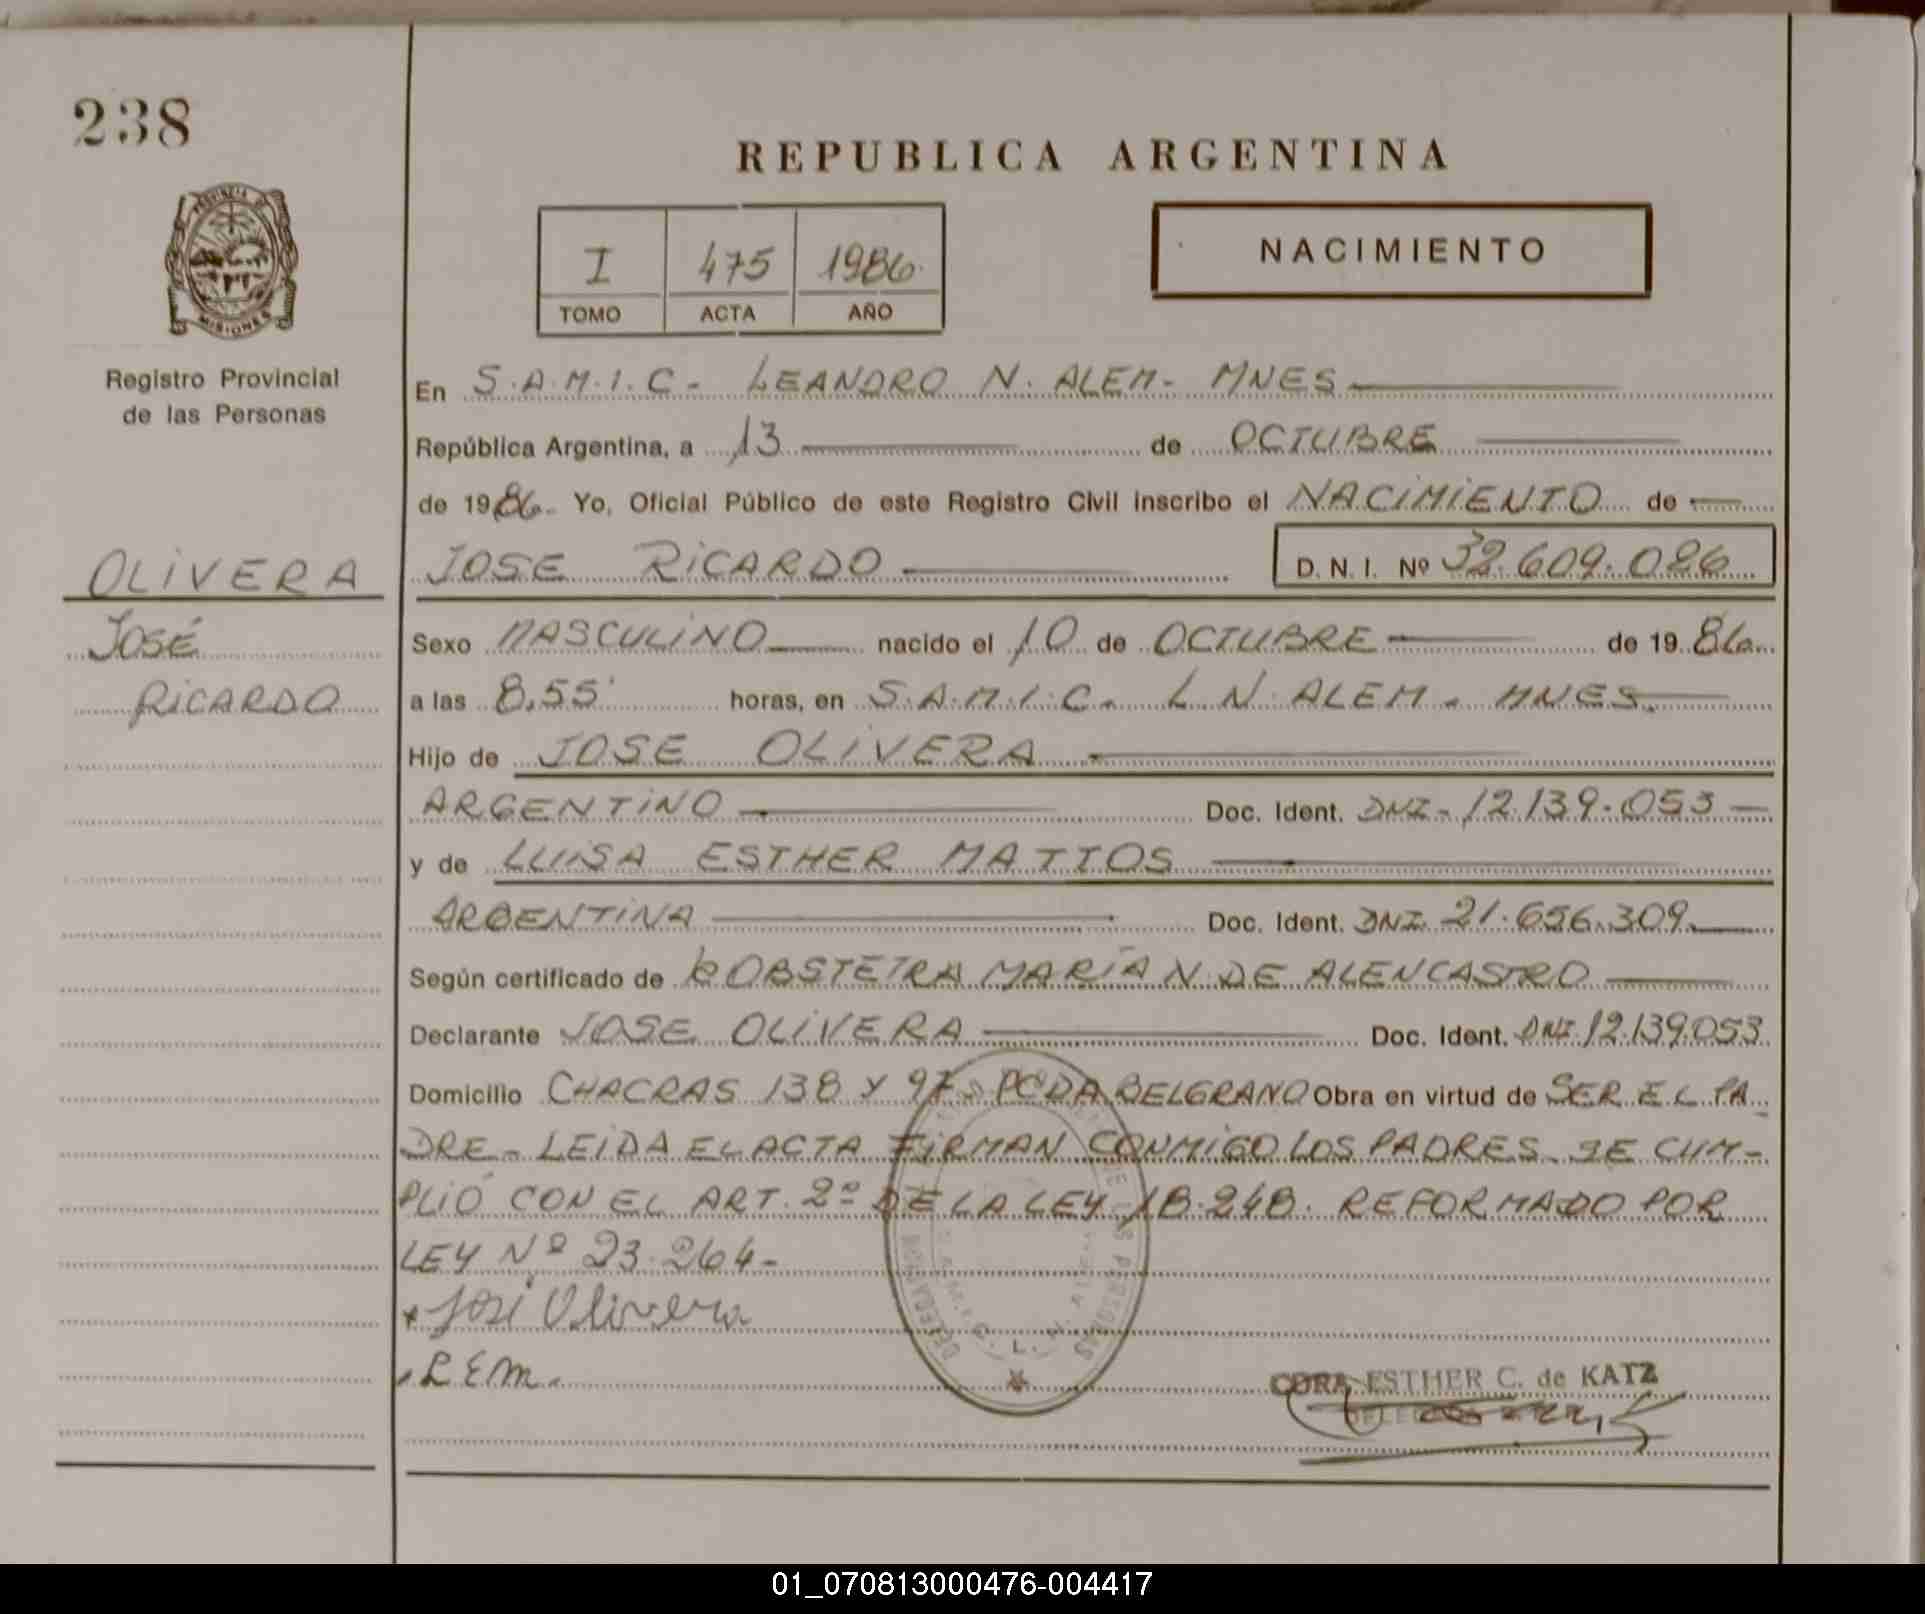 238
REPUBLICA ARGENTINA
I 475 1986
TOMO ACTA AÑO
NACIMIENTO
PROVINCIA DE
MISIONES
Registro Provincial
de las Personas
OLIVERA
JOSÉ
RICARDO
En S.A.M.I.C- LEANDRO N. ALEM- MNES
República Argentina, a 13 de OCTUBRE
de 1986. Yo, Oficial Público de este Registro Civil inscribo el NACIMIENTO de
JOSE RICARDO D. N. I. Nº 32.609.026
Sexo MASCULINO nacido el 10 de OCTUBRE de 1986
a las 8,55' horas, en S.A.M.I.C. L N. ALEM. MNES.
Hijo de JOSE OLIVERA
ARGENTINO Doc. Ident. DNI- 12.139.053
y de LUISA ESTHER MATTOS
ARGENTINA Doc. Ident. DNI. 21.656.309
Según certificado de OBSTETRA MARÍA N. DE ALENCASTRO
Declarante JOSE OLIVERA Doc. Ident. DNI. 12.139.053
Domicilio CHACRAS 138 Y 97 PCDA BELGRANO Obra en virtud de SER EL PA
DRE - LEIDA EL ACTA FIRMAN CONMIGO LOS PADRES. SE CUM-
PLIÓ CON EL ART. 2º DE LA LEY 18.248. REFORMADO POR
LEY Nº 23.264-
José Olivera
L E M.
CORA ESTHER C. de KATZ
01_070813000476-004417